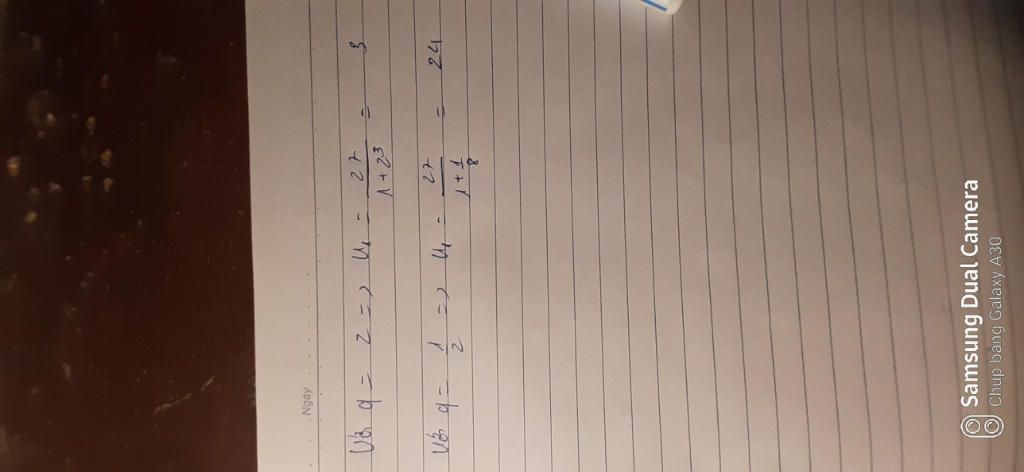 Ngày
Với q = 2 => u₁ = 27/(1 + 2³) = 3
Với q = 1/2 => u₁ = 27/(1 + 1/8) = 24
Samsung Dual Camera
Chụp bằng Galaxy A30